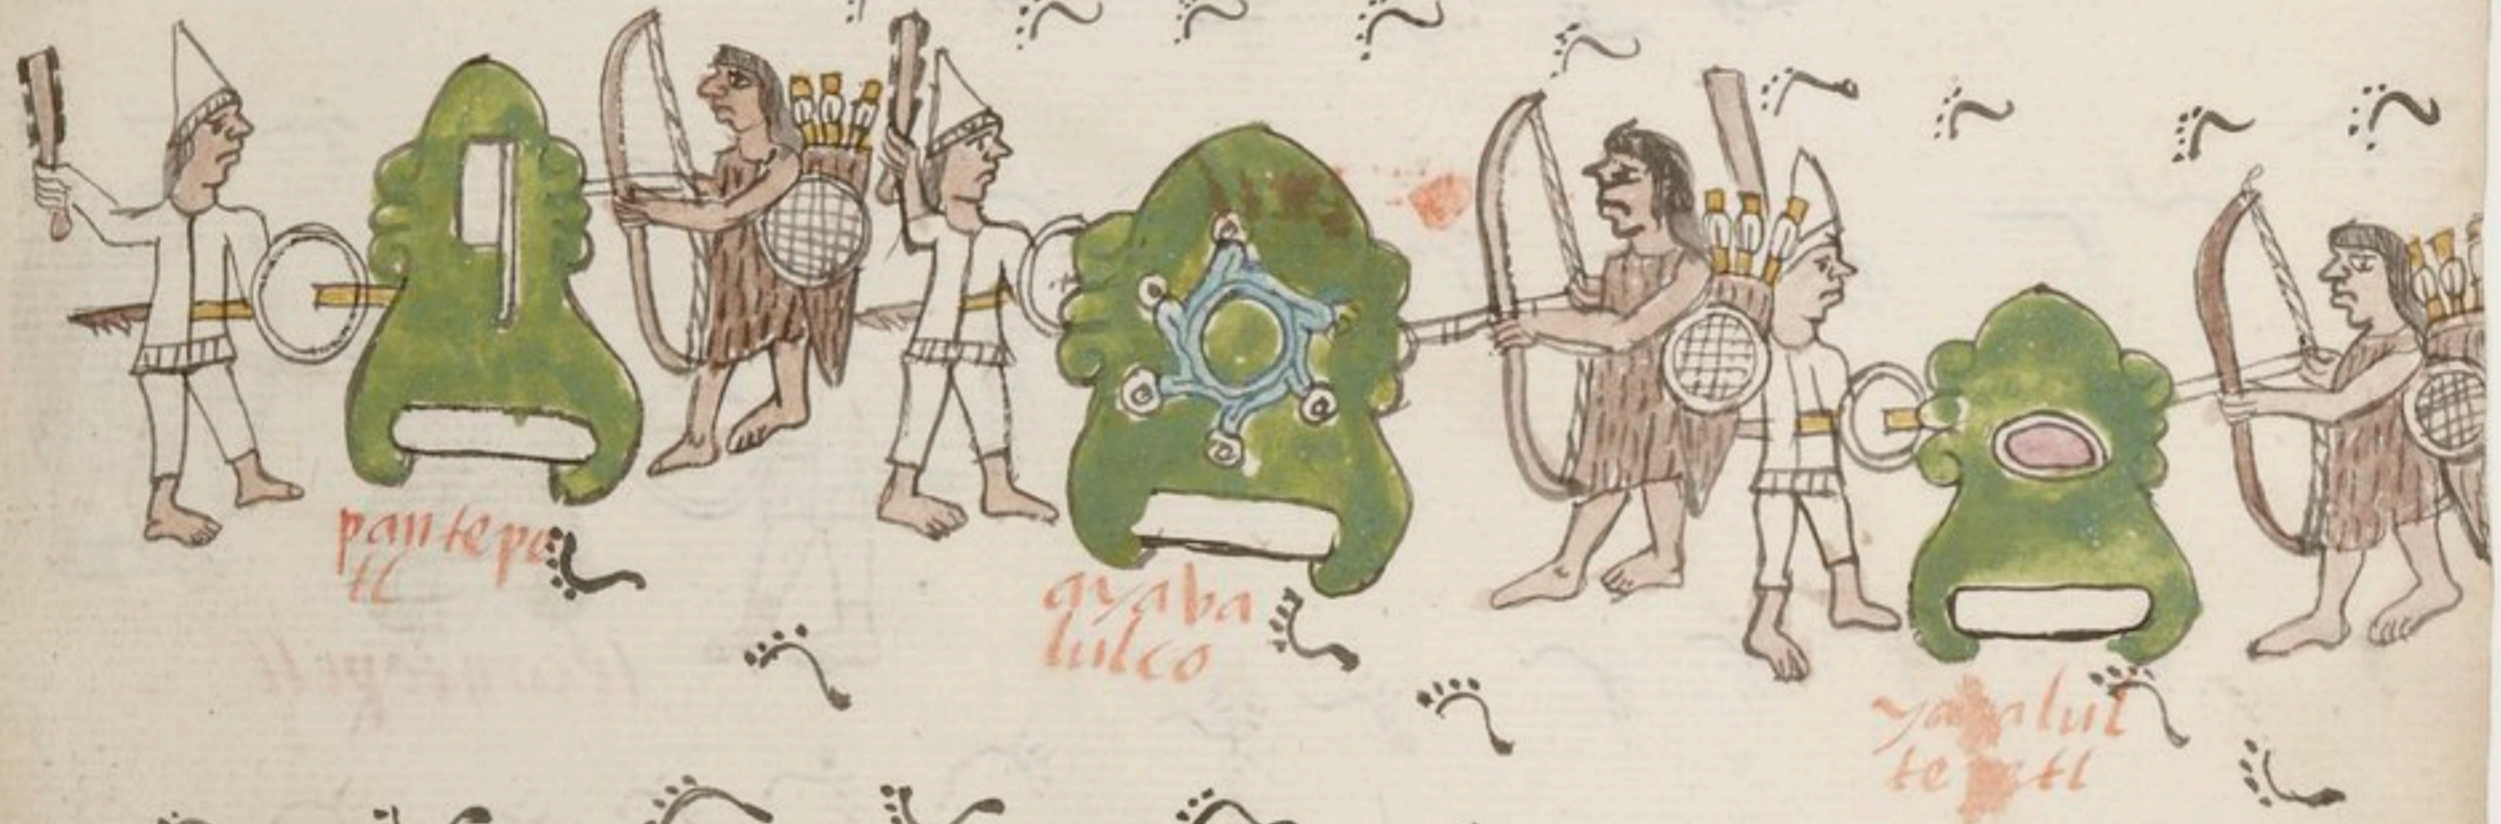 pantepe
tl
ayaba
lulco
yayalul
tepetl